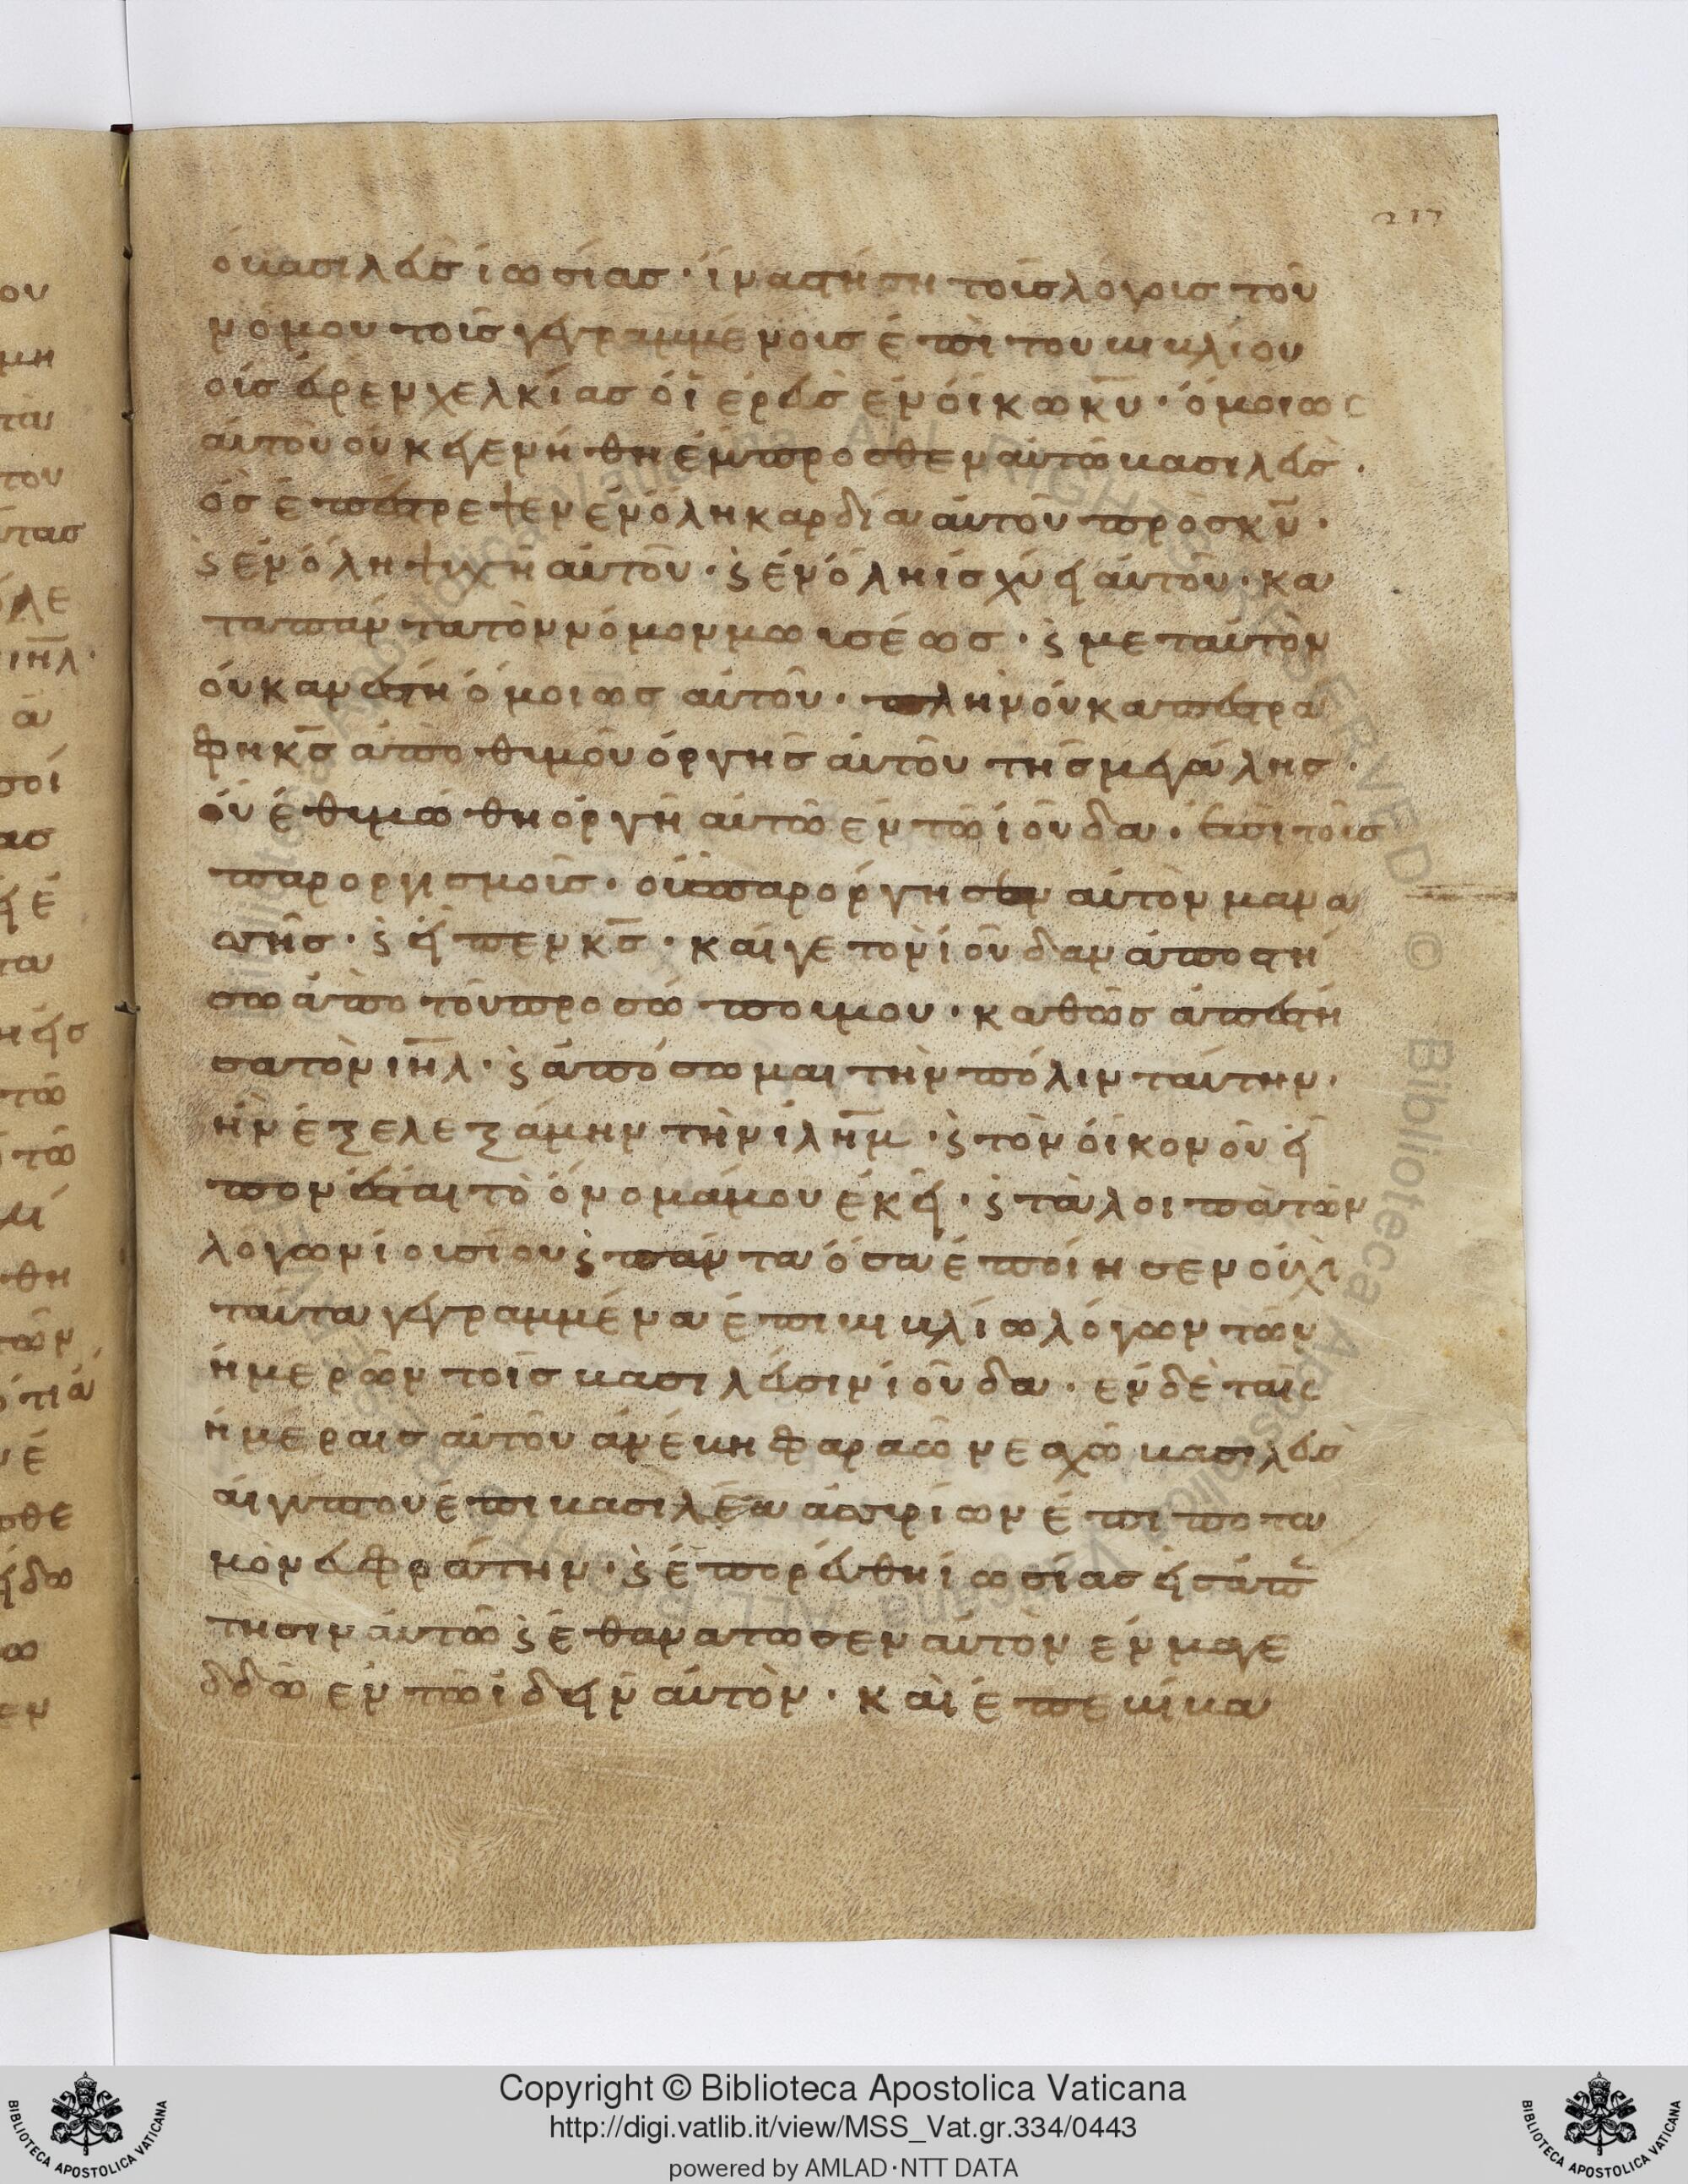 217
ὁ βασιλεὺς ἰωσίας· ἵνα στήσῃ τοῖς λόγοις τοῦ
νόμου τοῖς γεγραμμένοις ἐπὶ του βιβλίου
οἷς εὗρεν χελκίας ὁ ἱερεὺς ἐν οἴκω κ̅υ̅· ὅμοιος
αὐτοῦ οὐκ ἐγενήθη ἔμπροσθεν αὐτῶ βασιλεὺς·
ὃς ἐπέστρεψεν ἐν ὅλη καρδία αὐτοῦ πρὸς κ̅ν̅·
ϛ ἐν ὅλη ψυχῆ αὐτοῦ· ϛ ἐν ὅλη ἰσχύει αὐτοῦ· κα
τα πάντα τὸν νόμον μωυσέως· ϛ μετ αὐτὸν
οὐκ ἀνέστη ὅμοιως αὐτοῦ· πλὴν οὐκ ἀπεστρά
φη κ̅ς̅ ἀπὸ θυμοῦ ὀργῆς αὐτοῦ τῆς μεγάλης·
οὗ ἐθυμώθη ὀργῆ αὐτῶ ἐν τῶ ἰούδα· ἐπὶ τοῖς
παροργισμοῖς· οὓς παρόργησεν αὐτὸν μανα
σῆς· ϛ εἶπεν κ̅ς̅· καίγε τὸν ἰούδαν ἀποστή
σω ἀπὸ τοῦ προσώπου μου· καθὼς ἀπέστη
σα τὸν ι̅η̅λ̅· ϛ ἀπόσωμαι τὴν πόλιν ταύτην·
ἣν ἐξελεξάμην τὴν ι̅λ̅η̅μ̅· ϛ τὸν οἶκον οὗ εἶ
πον ἔσται τὸ ὄνομά μου ἐκεῖ· ϛ τὰ λοιπὰ τῶν
λόγων ἰουσίου ϛ πάντα ὅσα ἐποίησεν οὐχὶ
ταυτα γεγραμμένα ἐπι βιβλίω λόγων τῶν
ἡμερῶν τοῖς βασιλεῦσιν ἰούδα· ἐν δὲ ταῖς
ἡμέραις αὐτοῦ ἀνέβη φαραὼ νεχαὼ βασιλεὺς
αἰγύπτου ἐπι βασιλέα ἀσσυρίων ἐπι ποτα
μὸν εὐφράτην· ϛ ἐπορεύθη ἰωσίας εἰς ἀπάν
τησιν αὐτῶ ϛ ἐθανάτωσεν αὐτὸν ἐν μαγε
δδὼ ἐν τῶ ἰδεῖν αὐτὸν· καὶ ἐπεβίβα
Copyright © Biblioteca Apostolica Vaticana
http://digi.vatlib.it/view/MSS_Vat.gr.334/0443
powered by AMLAD·NTT DATA
BIBLIOTECA APOSTOLICA VATICANA
BIBLIOTECA APOSTOLICA VATICANA